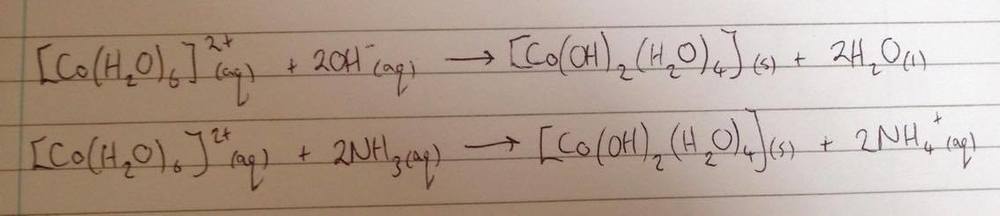 [Co(H₂O)₆]²⁺(aq) + 2OH⁻(aq) → [Co(OH)₂(H₂O)₄](s) + 2H₂O(l)
[Co(H₂O)₆]²⁺(aq) + 2NH₃(aq) → [Co(OH)₂(H₂O)₄](s) + 2NH₄⁺(aq)